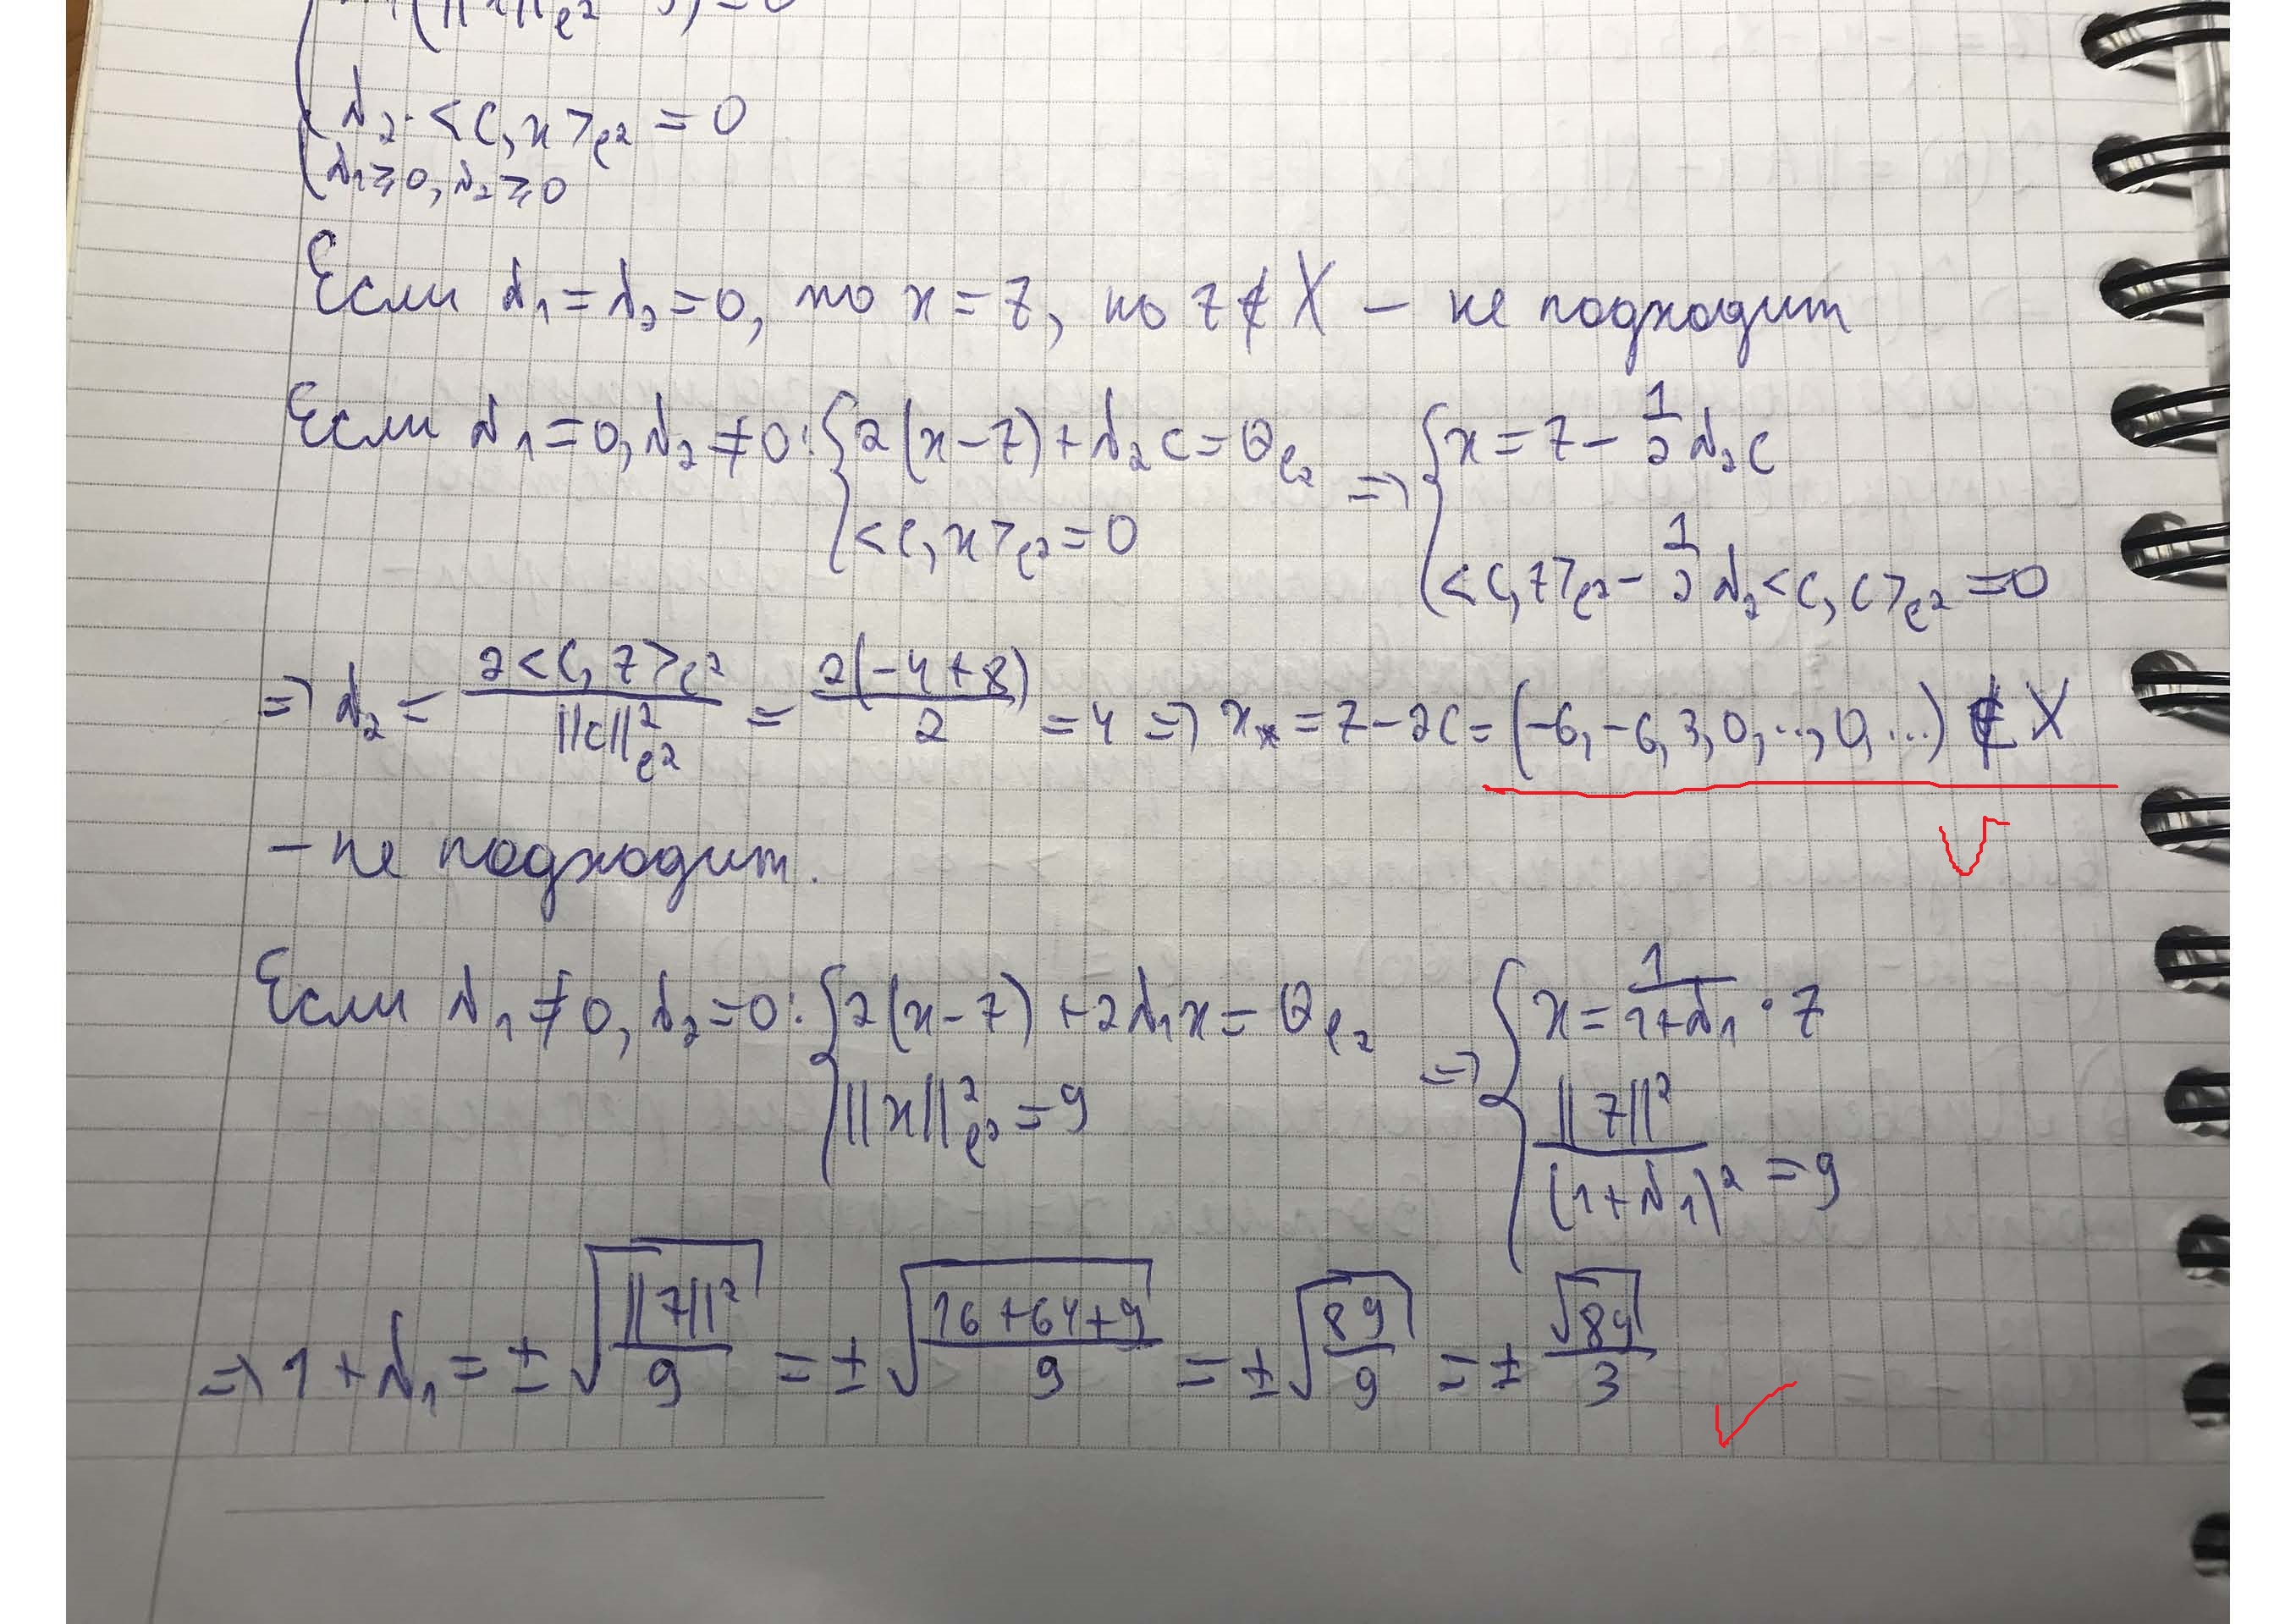 (‖x‖²ℓ² − 9) = 0
λ₂·<c, x>ℓ² = 0
λ₁ ≥ 0, λ₂ ≥ 0
Если λ₁ = λ₂ = 0, то x = z, но z ∉ X – не подходит
Если λ₁ = 0, λ₂ ≠ 0: { 2(x − z) + λ₂c = θℓ₂ ⇒ { x = z − 1/2 λ₂c
<c, x>ℓ² = 0 <c, z>ℓ² − 1/2 λ₂<c, c>ℓ² = 0
⇒ λ₂ = 2<c, z>ℓ² / ‖c‖²ℓ² = 2(−4+8)/2 = 4 ⇒ x* = z − 2c = (−6, −6, 3, 0, ..., 0, ...) ∉ X
– не подходит.
Если λ₁ ≠ 0, λ₂ = 0: { 2(x − z) + 2λ₁x = θℓ₂ ⇒ { x = 1/(1+λ₁) · z
‖x‖²ℓ² = 9 ‖z‖²/(1+λ₁)² = 9
⇒ 1 + λ₁ = ± √(‖z‖²/9) = ± √((16+64+9)/9) = ± √(89/9) = ± √89/3